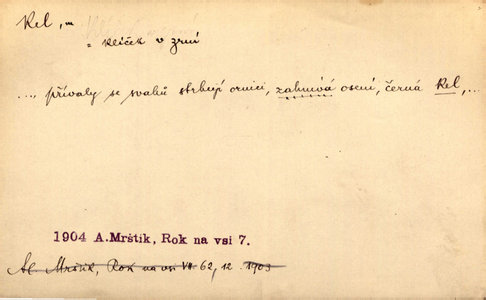 Kel, m
= klíček v zrní
..., přívaly se svahů strhují ornici, zahnívá osení, černá kel,...
1904 A.Mrštík, Rok na vsi 7.
Al. Mrštík, Rok na vsi VII 62, 12. 1903